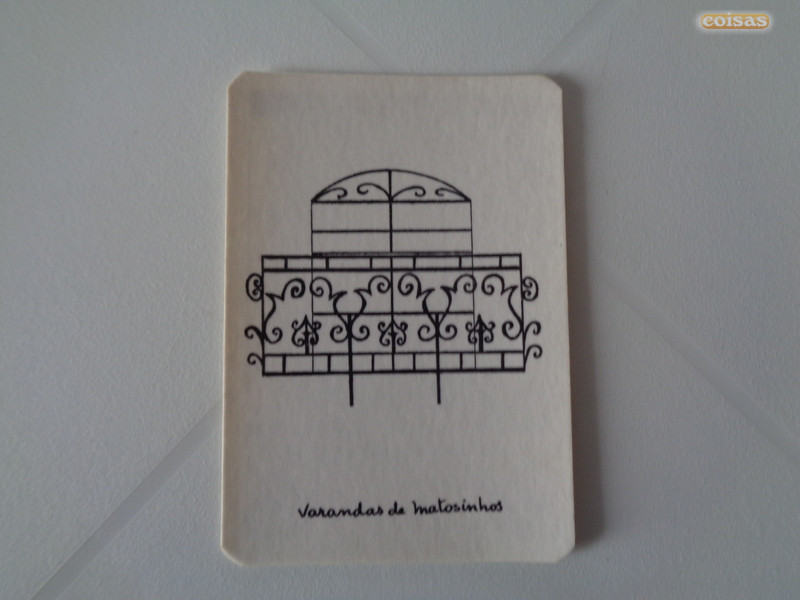 coisas
Varandas de Matosinhos